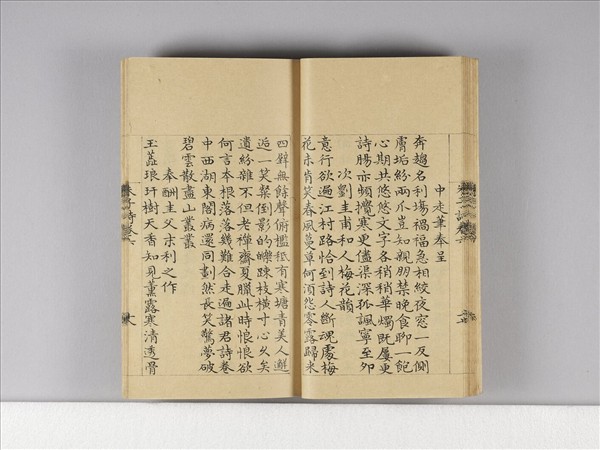 中走筆奉呈
奔趨名利場禍福急相絞夜窓一反側
膚垢紛兩爪豈知親朋禁晚食聊一飽
心期共悠悠文字各稍稍華燭既屢更
詩腸亦頻攪寒更儘渠深孤諷寧至卯
次劉圭甫和人梅花韻
意行欲過江村路恰到詩人斷魂處梅
花未肯笑春風蔓草何須怨零露歸來
四壁無餘聲俯檻秪有寒塘青美人邂
逅一笑粲倒影的皪踈枝橫寸心久矣
遺紛雜不但老禪齊夏臘此時恨恨欲
何言本根落落幾難合走過諸君詩卷
中西湖東閤病還同劃然長笑驚夢破
碧雲散盡山叢叢
奉酬圭父末利之作
玉蘂琅玕樹天香知見薰露寒清透骨